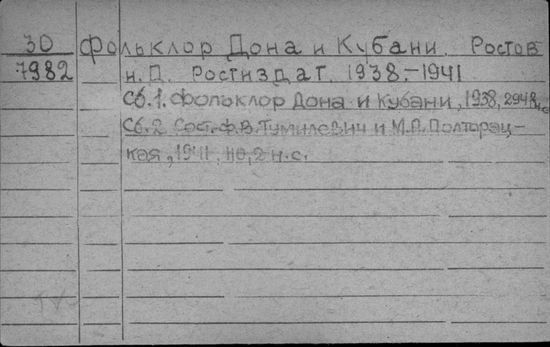 30 Фольклор Дона и Кубани. Ростов
7982 н.Д. Ростиздат, 1938.-1941
Сб.1. Фольклор Дона и Кубани, 1938,
Сб.2. Сост. Ф.В. Тумилевич и М.А. Полторац-
кая, 1941, 2 н.с.